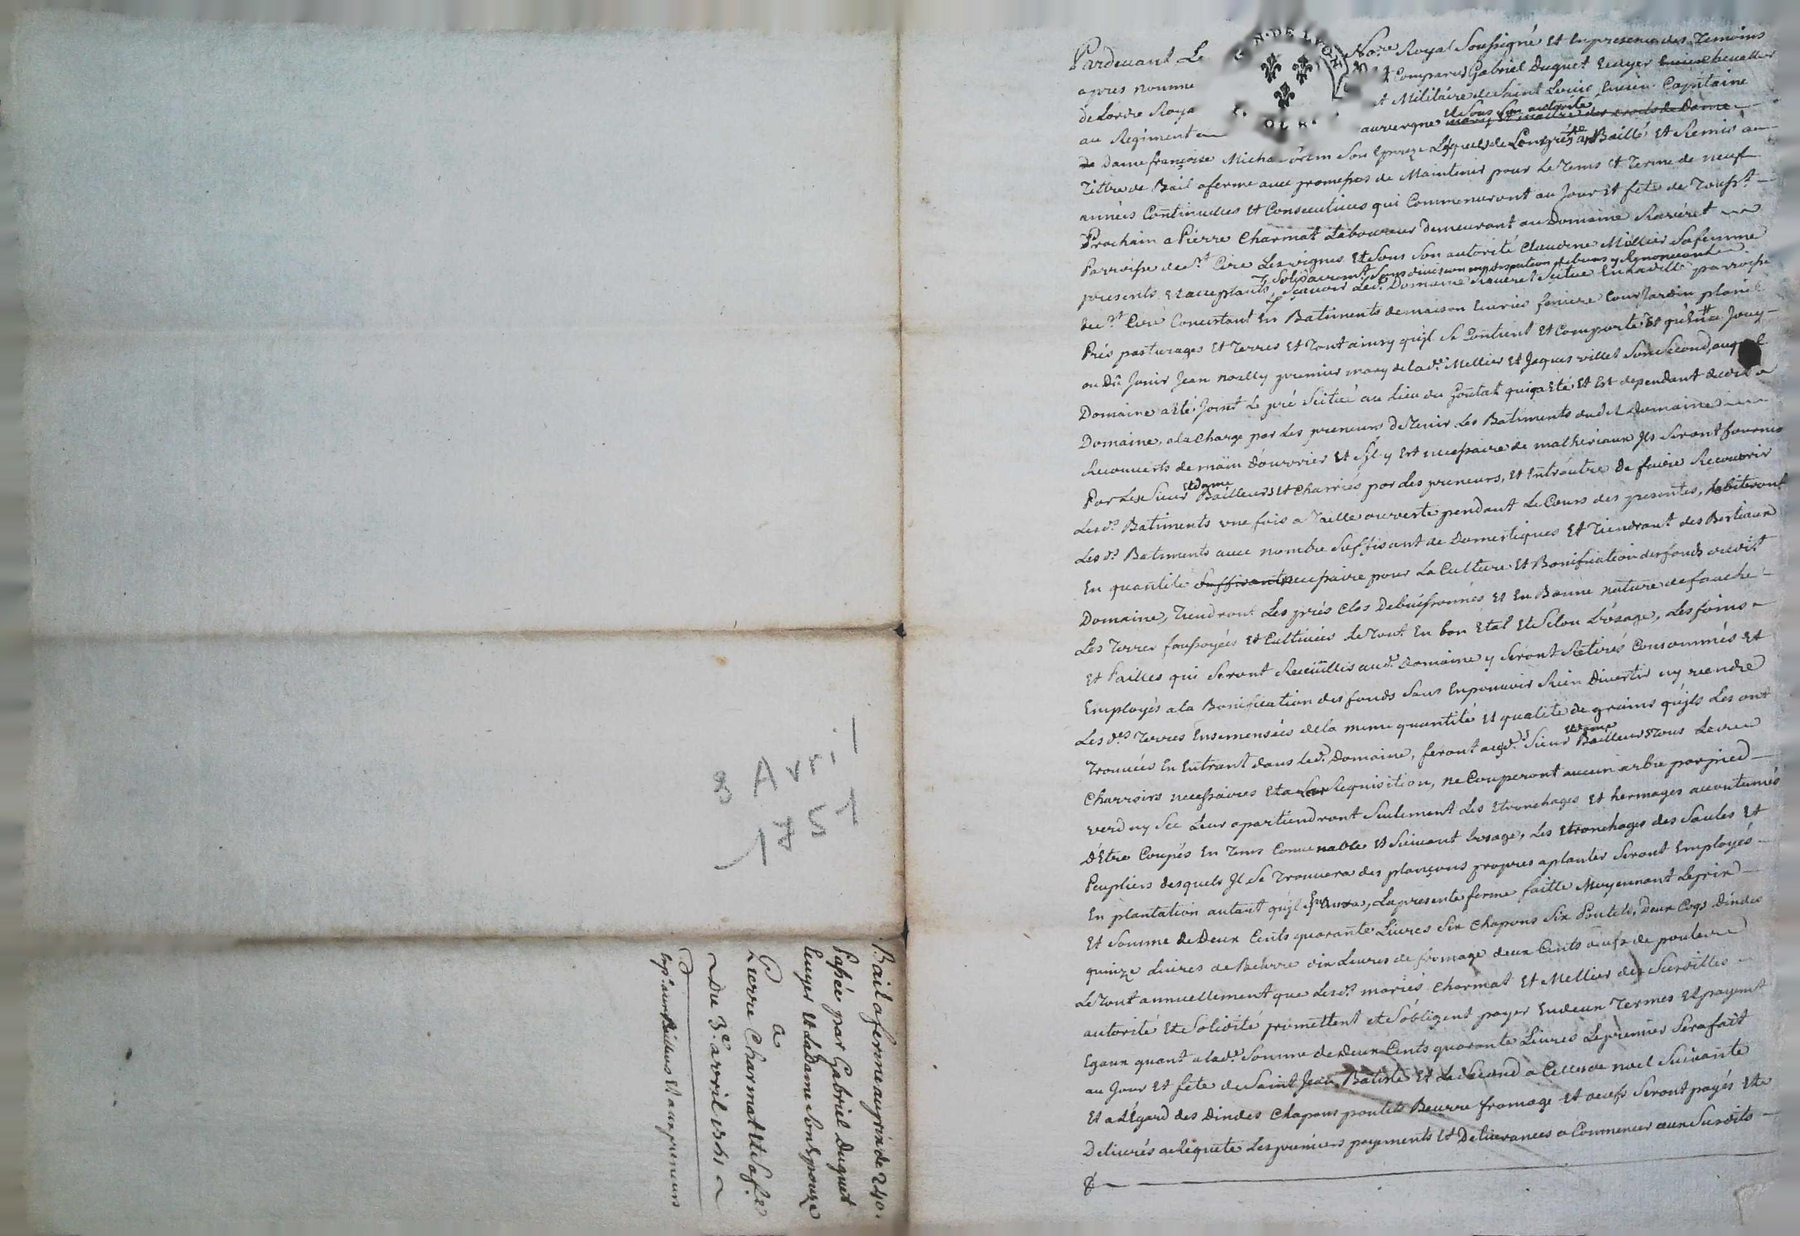 3 Avri
1751
Bail a ferme au prix de 240.
Passée par Gabriel Duguet
Ecuyer Et La Dame Son Epouze
a
Pierre Charmat Et Sa fe
Du 3e avril 1751
Exp. aux Bailleurs Et aux preneurs
GEN. DE LYON
Pardevant Le Nore Royal Soussigné Et En presence des Temoins
apres nommé Comparus Gabriel Duguet Ecuyer Chevallier
de Lordre Roya Et Militaire de Saint Louis Capitaine
au Regiment auvergne Et Sous Son autorité
Dame françoise Micha Son Epouze Lesquels de Leur gré ont Baillé Et Remis a
Tittre de Bail a ferme avec promesses de Maintenir pour Le Tems Et Terme de neuf
années Continuelles Et Consecutives qui Commenceront au Jour Et fête de Toussts
Prochain a Pierre Charmat Laboureur Demeurant au Domaine
Parroisse de St Cire Les vignes Et Sous Son autorité Claudine Mellier Sa femme
Solidairemt Sans division ny discution de biens y Renonceant
presents Et acceptants, Sçavoir Led. Domaine Situé parroisse
de St Cire Concistant En Batiments de maison Ecuries feniere Cour Jardin
Prés pasturages Et Terres Et Tout ainsy quil Se Contient Et Comporte Et
ou Dû Jouir Jean premier mary de lad. Mellier Et Jaques villet Son Second, auquel
Domaine a Eté Joint Le pré Scitué au Lieu du quia Eté Et Est dependant dudit
Domaine, a la Charge par Les preneurs de Tenir Les Batiments dudit Domaine
Recouverts de main D'ouvrier Et Sil y Est necessaire de matheriaux Ils Seront fournis
Par Les Sieur Et Dame Bailleurs Et Charriés par Les preneurs, Et Entroutre De faire Recouvrir
Lesds Batiments une fois a Taille ouverte pendant Le Cours des presentes, habiteront
Lesds Batiments avec nombre Suffisant de Domestiques Et Tiendront des Bestiaux
En quantité necessaire pour La Culture Et Bonification des fonds dudit
Domaine, Tiendront Les prés Clos Et En Bonne nature de fauche
Les Terres fossoyées Et Cultivées Le Tout En bon Etat Et Selon L'usage, Les foins
Et Pailles qui Seront Recüillis aud. Domaine y Seront Retirés Consommés Et
Employés a la Bonification des fonds Sans En pouvoir Rien Divertir ny vendre
Les des Terres Ensemensées de la meme quantité Et qualité de grains quils Les ont
Trouvées En Entrant dans led. Domaine, feront auxds Sieur Et Dame Bailleurs Tous Les
Charrois necessaires Et a Requisition, ne Couperont aucun arbre par pied
verd ny Sec Leur apartiendront Seulement Les Etronchages Et hermages accoutumés
D'Etre Coupés En Tems Convenable Et Suivant Lusage, Les Etronchages des Saules Et
Peupliers desquels Il Se Trouvera des plançons propres a planter Seront Employés
En plantation autant quil En aura, La presente ferme faitte Moyennant Le prix
Et Somme de Deux Cents quarante Livres Six Chapons Six Poulets, Deux Coqs Dindes
quinze Livres de Beurre dix Livres de fromage deux Cents œufs de poules
Le Tout annuellement que Lesds mariés Charmat Et Mellier des Susdittes
autorité Et Solidité promettent Et S'obligent payer En deux Termes Et payemt
Egaux quant a lad. Somme de Deux Cents quarante Livres Le premier Sera fait
au Jour Et fête de Saint Jean Batiste Et Le Second a Celle de noel Suivante
Et a L'égard des Dindes Chapons poulets Beurre fromage Et œufs Seront payés Et
Delivrés a Les premiers payments Et Delivrances a Commencer aux Susdits